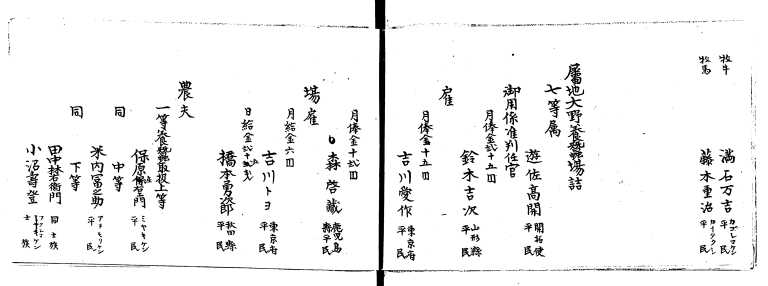 牧牛
満石万吉 カゴシマケン 平民
牧馬
藤本重治 カイタクシ 平民
屬地大野養蚕場詰
七等属
遊佐高開 開拓使 平民
御用係准判任官
月俸金弐十五円
鈴木吉次 山形縣 平民
雇
月俸金十五円
吉川愛作 東京府 平民
月俸金十弐円
森啓藏 鹿児島縣平民
場雇
月給金六円
吉川トヨ 東京府 平民
日給金弐十五戋
橋本勇次郎 秋田縣 平民
農夫
一等養蚕取扱上等
保原傳右衛門 ミヤキケン 平民
同 中等
米内冨之助 アヲモリケン 平民
同 下等
田中林右衛門 同 士族
小沼壽登 士族